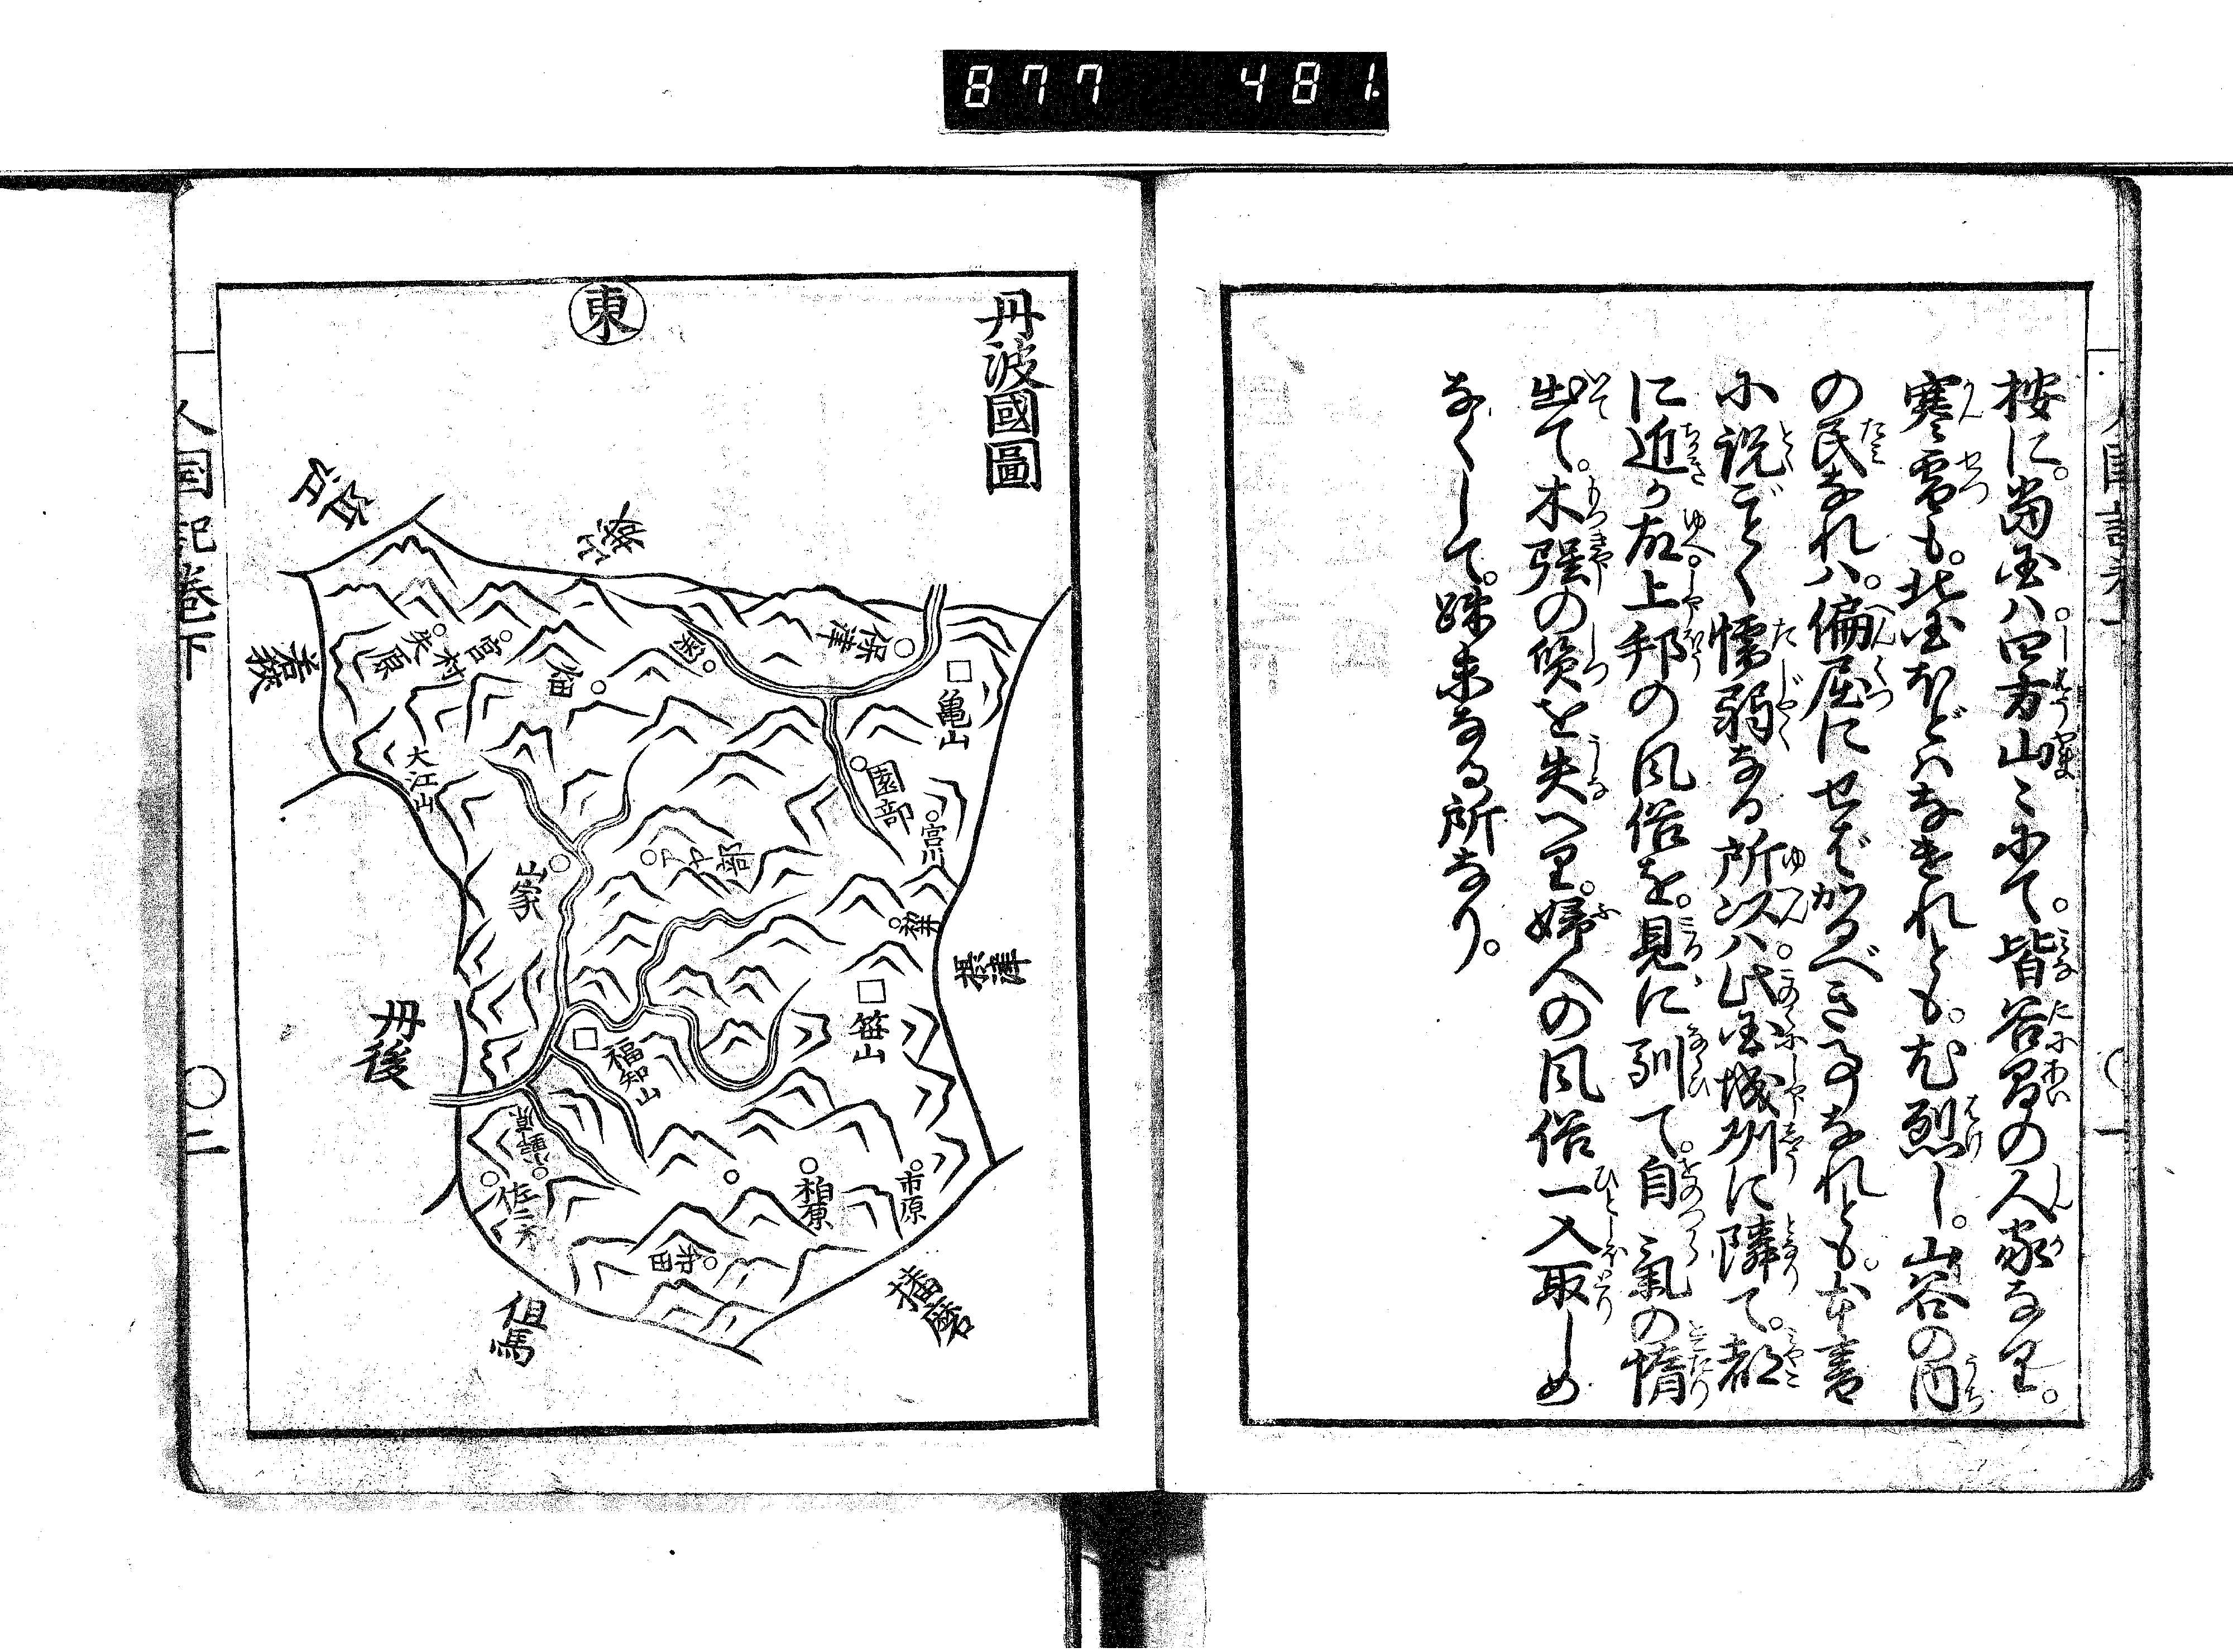 877 481
按に。當国ハ四方山々にて。皆谷間の人家なり。
寒雪も。北国ほどハなけれとも。尤烈し。山谷の内
の民なれハ。偏屈にせばかるべき事なれとも。本書
に説ごとく懦弱なる所以ハ。此国城州に隣て。都
に近か故。上邦の風俗を。見に馴て。自氣の惰
出て。木強の質を失へり。婦人の風俗一入取しめ
なくして。踈末なる所なり。
丹波國圖
東
近江
若狭
丹後
但馬
播磨
摂津
保津
亀山
園部
宮川
宮村
矢原
大江山
山家
笹山
福知山
柏原
市原
人国記巻下
〇二